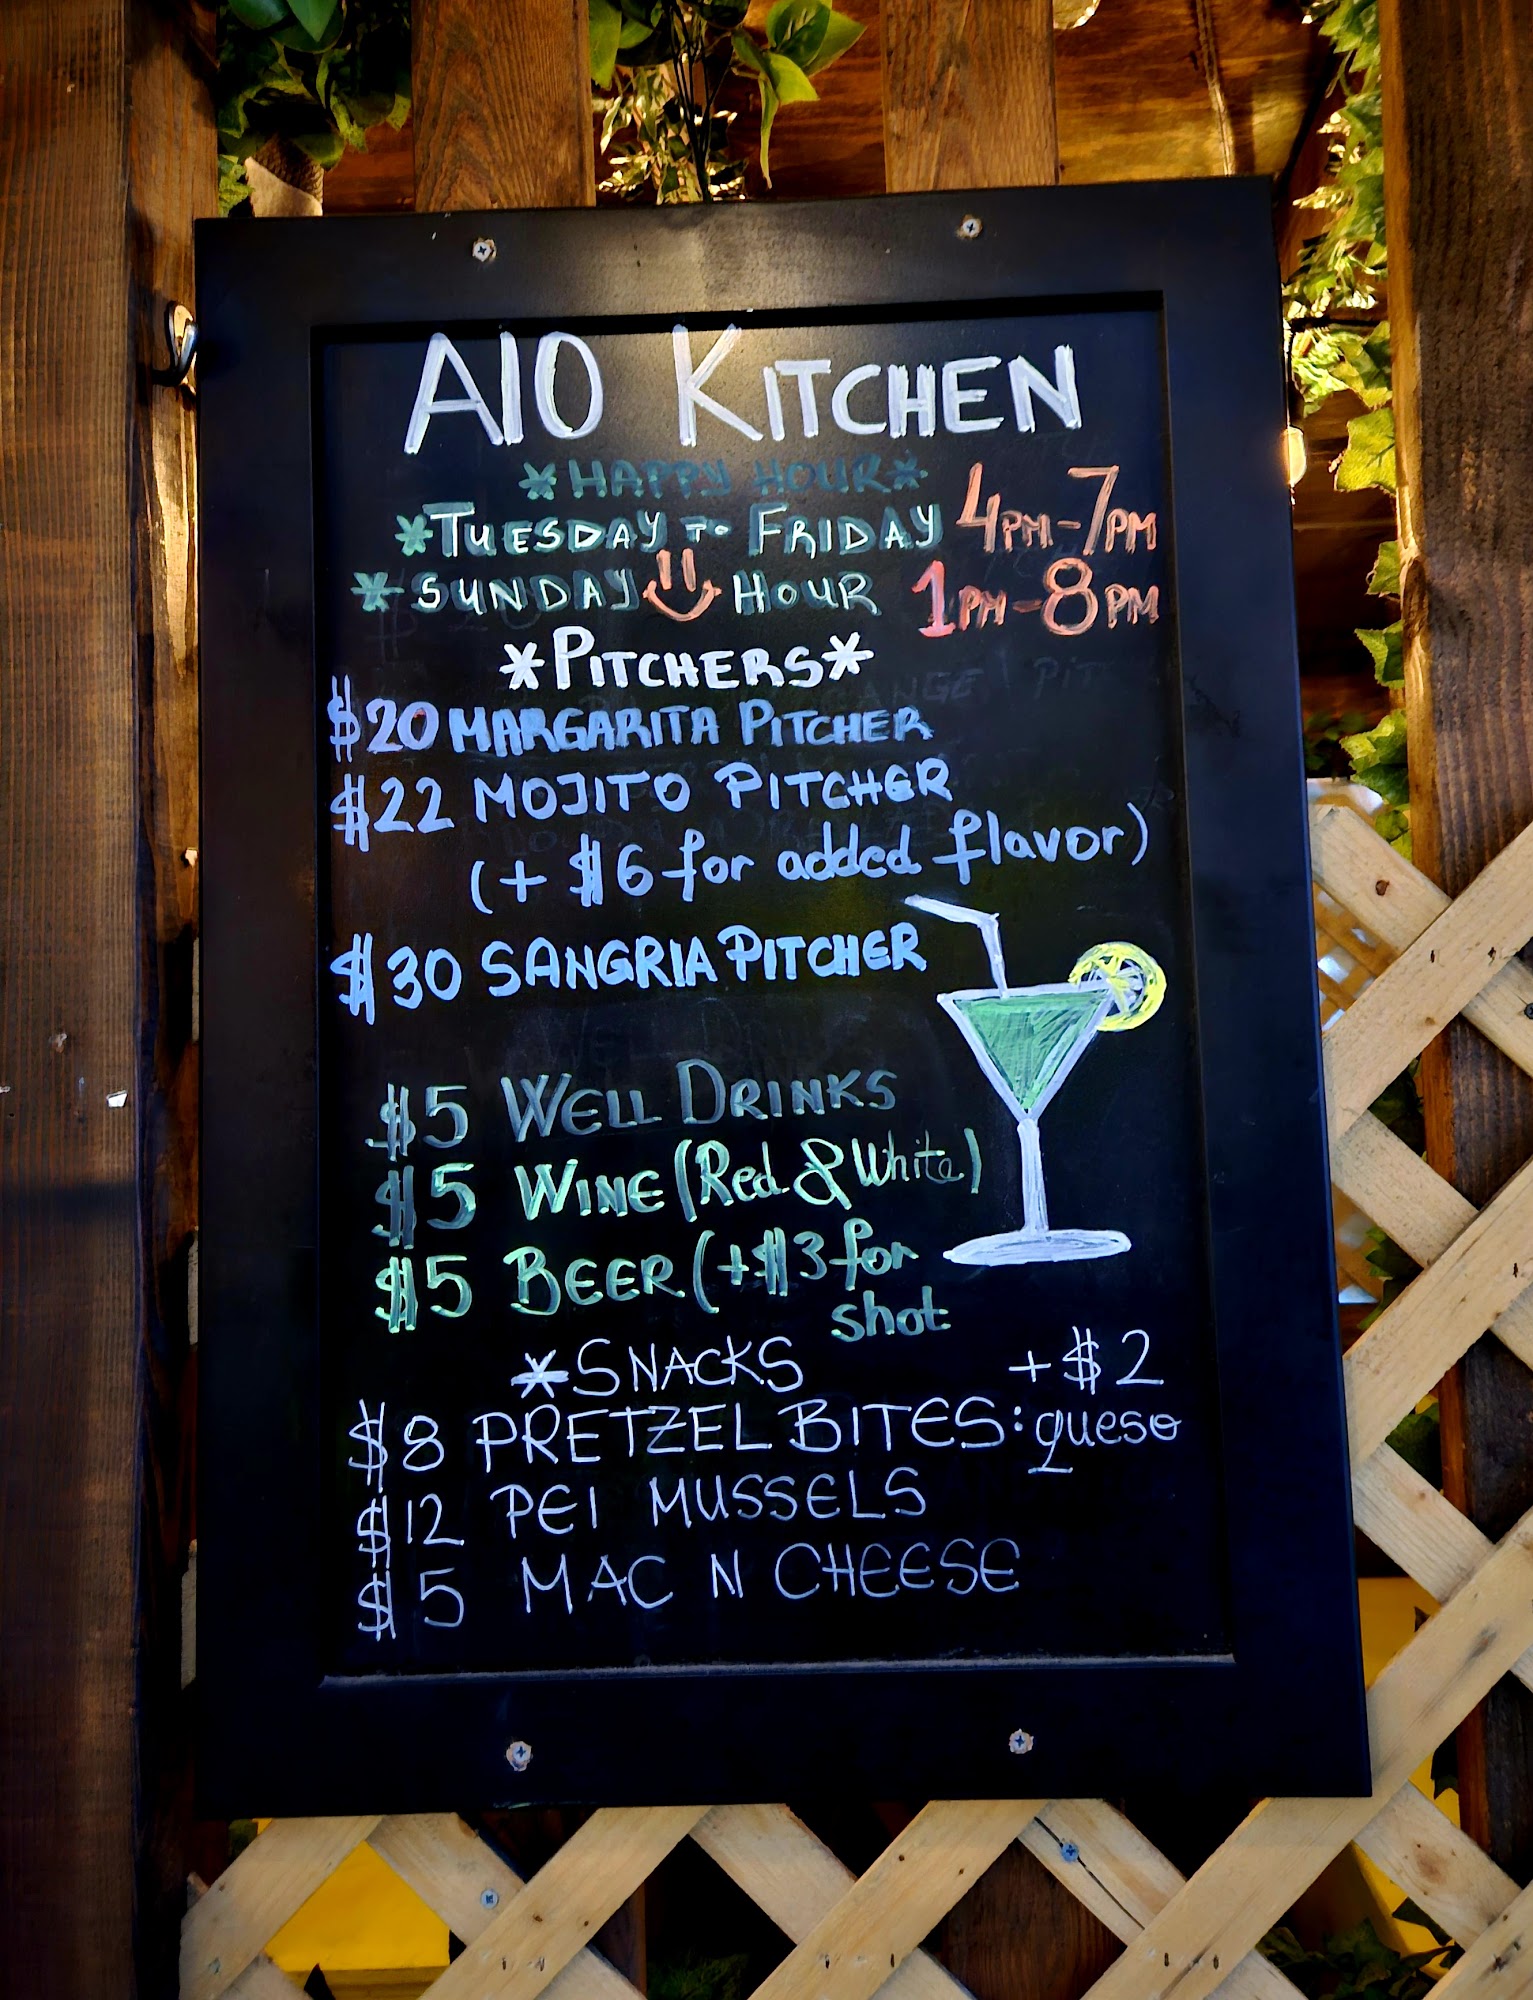 A10 KITCHEN
*HAPPY HOUR*
*TUESDAY TO FRIDAY 4PM-7PM
*SUNDAY HOUR 1PM-8PM
*PITCHERS*
$20 MARGARITA PITCHER
$22 MOJITO PITCHER
(+ $6 for added flavor)
$30 SANGRIA PITCHER
$5 WELL DRINKS
$5 WINE (Red & White)
$5 BEER (+$3 for
shot
*SNACKS +$2
$8 PRETZEL BITES: queso
$12 PEI MUSSELS
$5 MAC N CHEESE